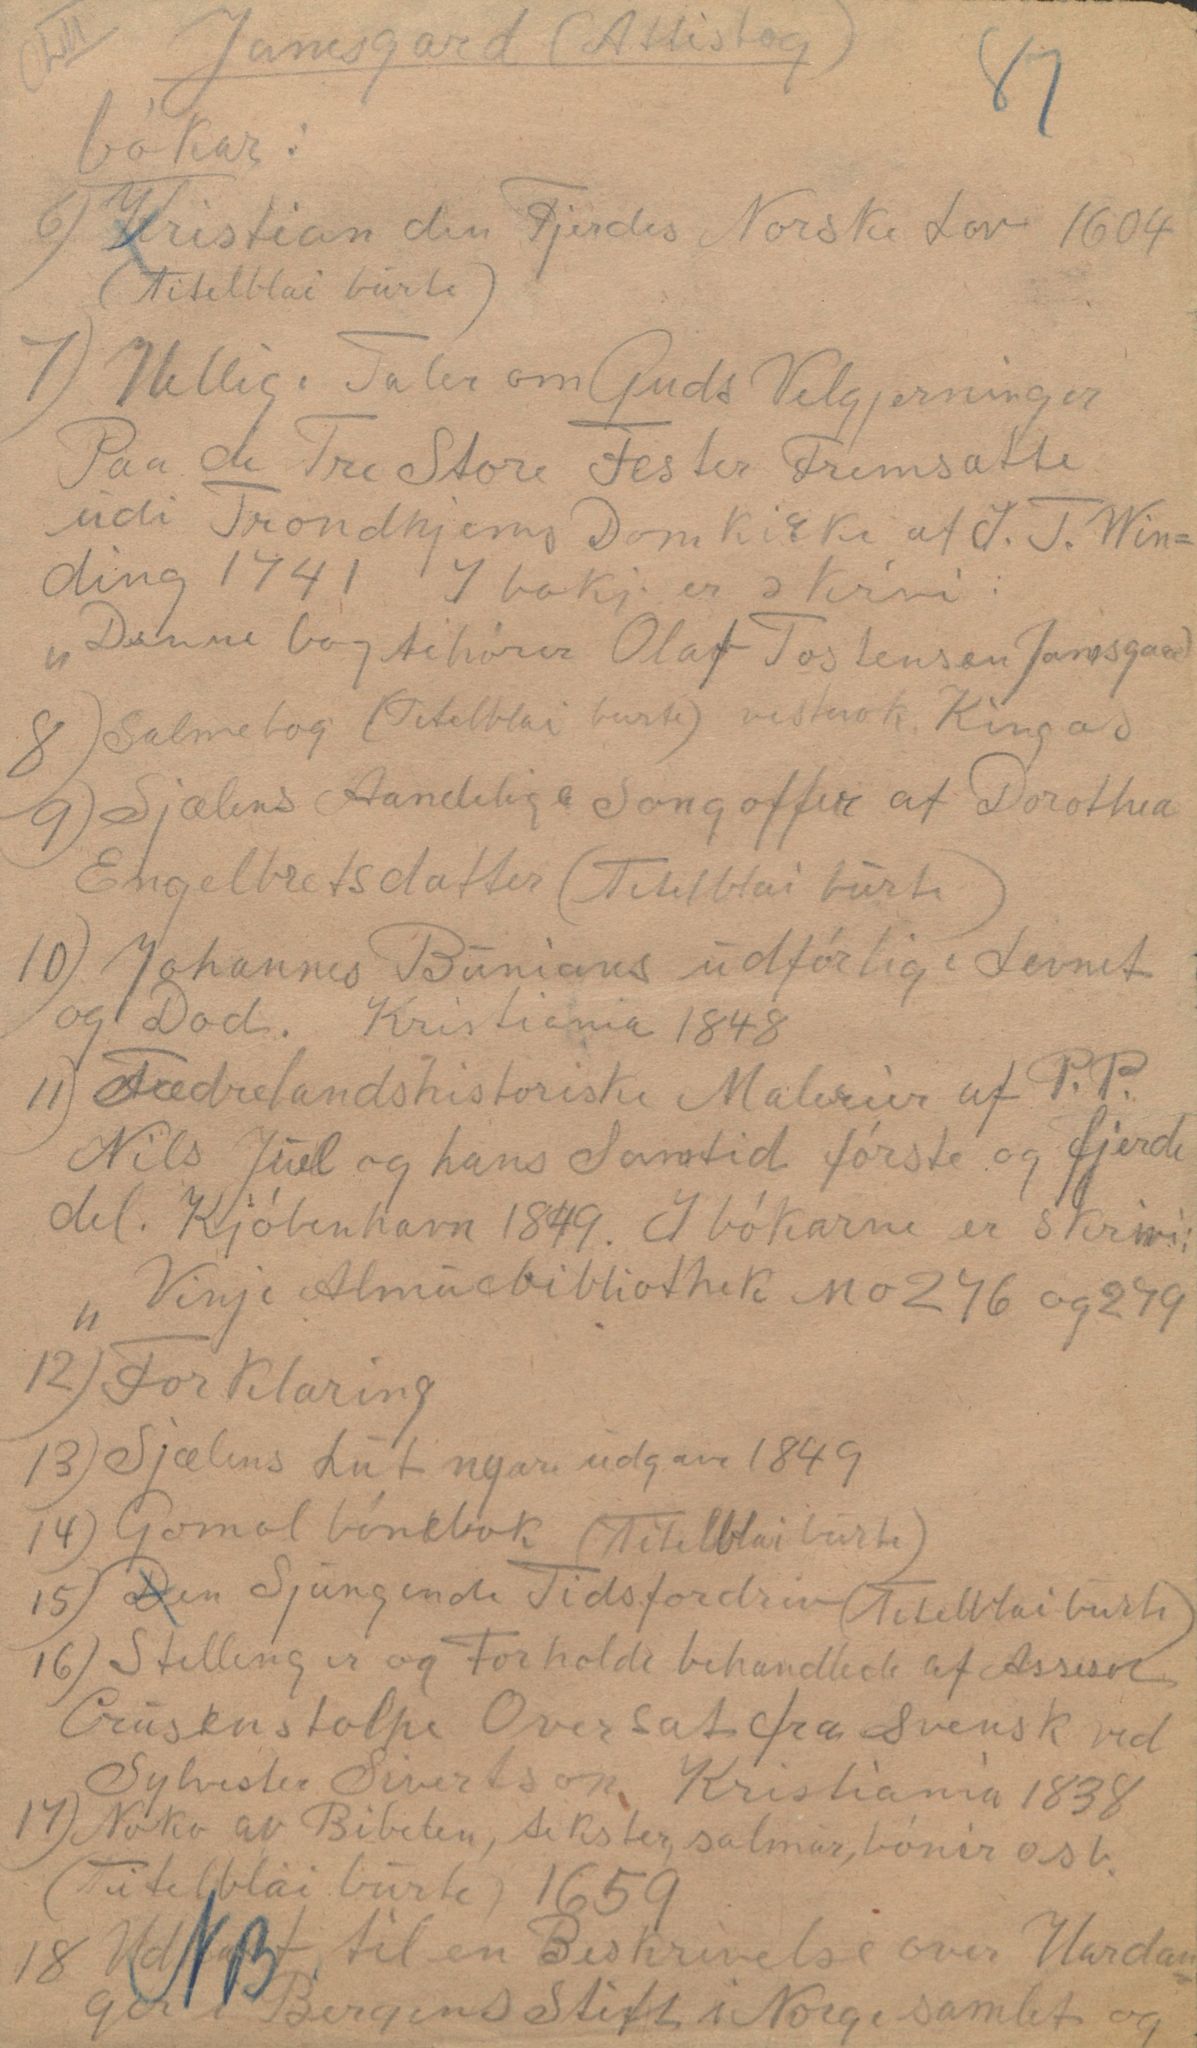 Jamsgard (Attistog)
87
bókar:
6) Kristian den Fjerdes Norske Lov 1604
(Titelblai bŭrte)
7) Hellige Taler om Guds Velgjerninger
Paa de Tre Store Fester Fremsatte
ŭdi Trondhjems Domkirke af J. T. Win=
ding 1741 I bokj er skrivi:
„Denne bog tehörer Olaf Tostensen Jamsgaard
8) Salmebog (Titelblai burte) vistnok Kingos
9) Sjælens Aandelige Sangoffer af Dorothea
Engelbretsdatter (Titelblai bŭrte)
10) Johannes Bŭnians ŭdförlige Levnet
og Död. Kristiania 1848
11) Fædrelandshistoriske Malerier af P. P.
Nils Jŭel og hans Samtid förste og fjerde
del. Kjöbenhavn 1849. I bókarne er skrivi:
„Vinje Almŭebibliothek No 276 og 279
12) Forklaring
13) Sjælens Lŭt nyare ŭdgave 1849
14) Gomol bönebok (Titelblai bŭrte)
15) Den Sjŭngende Tidsfordriv (Titelblai bŭrte)
16) Stillinger og Forholde behandlede af Assesor
Crŭsenstolpe Oversat fra Svensk ved
Sylvester Sivertson Kristiania 1838
17) Noko av Bibelen, tekster, salmar, bónir osb.
(Titelblai bŭrte) 1659
NB
18 Udkast til en Beskrivelse over Hardan=
ger i Bergens Stift i Norge samlet og